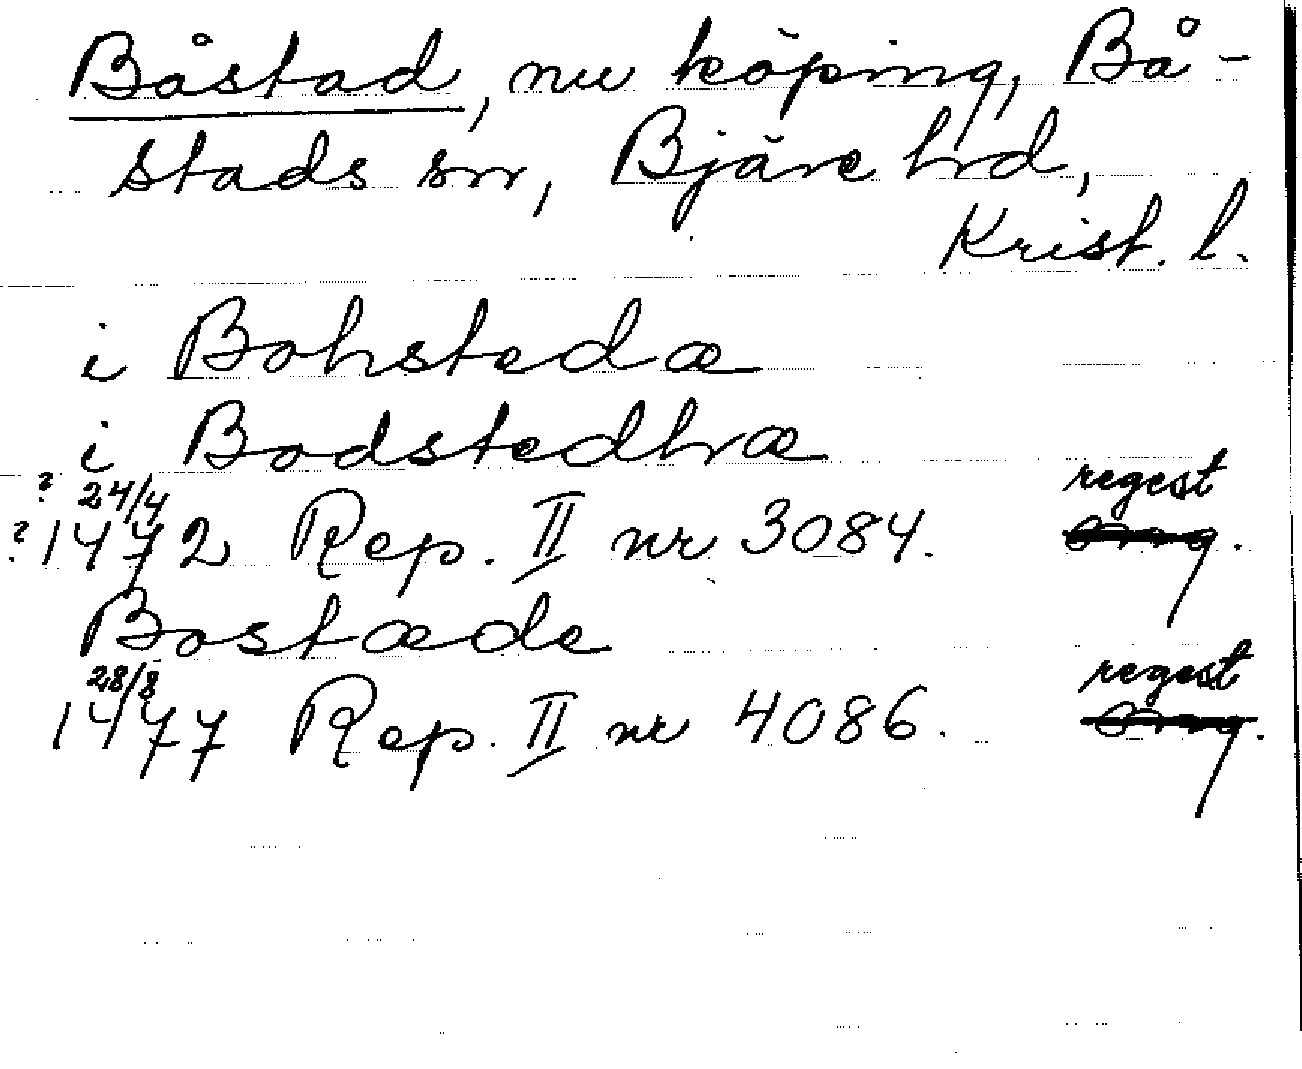 Båstad, nu köping, Bå-
stads sn, Bjäre hd,
Krist. l.
i Bohstedæ
i Bodstedhræ
? 24/4 regest
? 1472 Rep. II nr 3084. orig.
Bostæde
28/8 regest
1477 Rep. II nr 4086. orig.